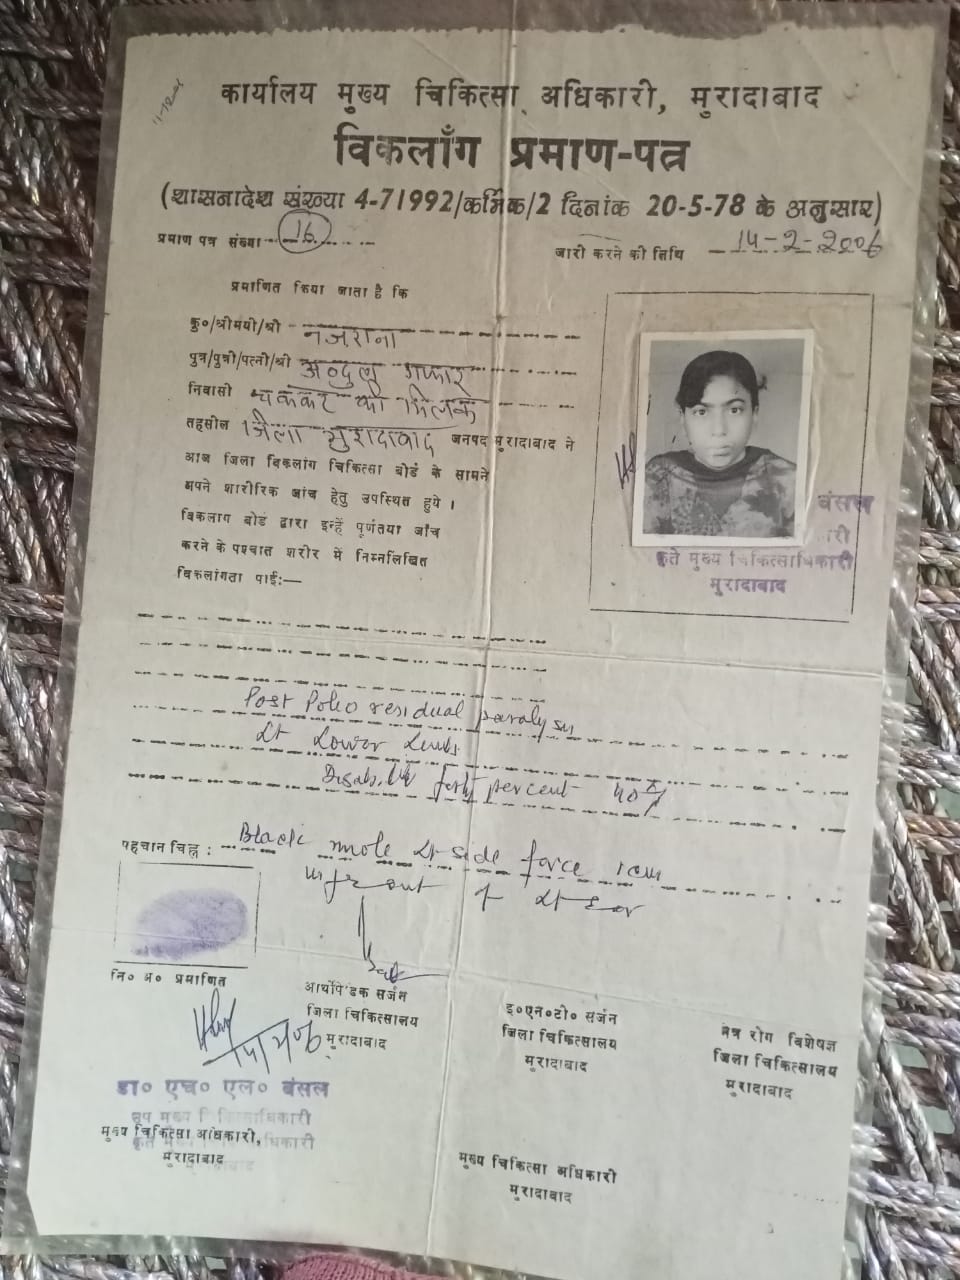 कार्यालय मुख्य चिकित्सा अधिकारी, मुरादाबाद
विकलाँग प्रमाण-पत्र
(शासनादेश संख्या 4-71992/कर्मिक/2 दिनांक 20-5-78 के अनुसार)
प्रमाण पत्र संख्या 16
जारी करने की तिथि 14-2-2006
प्रमाणित किया जाता है कि
कु०/श्रीमती/श्री नजराना
पुत्र/पुत्री/पत्नी/श्री अब्दुल गफ्फार
निवासी चक्कर की मिलक
तहसील जिला मुरादाबाद जनपद मुरादाबाद ने
आज जिला विकलांग चिकित्सा बोर्ड के सामने
अपने शारीरिक जांच हेतु उपस्थित हुये ।
विकलांग बोर्ड द्वारा इन्हें पूर्णतया जाँच
करने के पश्चात शरीर में निम्नलिखित
विकलांगता पाई:—
बंसल
कृते मुख्य चिकित्साधिकारी
मुरादाबाद
Post Polio residual paralysis
Lt Lower Limb
Disability forty percent 40%
पहचान चिह्न : Black mole Lt side force 1cm
infront of Lt Ear
नि० अ० प्रमाणित
आर्थोपेडिक सर्जन
जिला चिकित्सालय
मुरादाबाद
इ०एन०टी० सर्जन
जिला चिकित्सालय
मुरादाबाद
नेत्र रोग विशेषज्ञ
जिला चिकित्सालय
मुरादाबाद
डा० एच० एल० बंसल
उप मुख्य चिकित्साधिकारी
मुख्य चिकित्सा अधिकारी,
मुरादाबाद
मुख्य चिकित्सा अधिकारी
मुरादाबाद